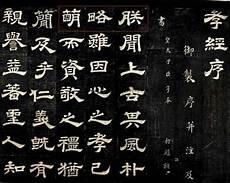 孝經序
御製序并注及
書 皇太子臣亨奉 勅題額
朕聞上古其風朴
略雖因心之孝已
萌而資敬之禮猶
簡及乎仁義既有
親譽益著聖人知